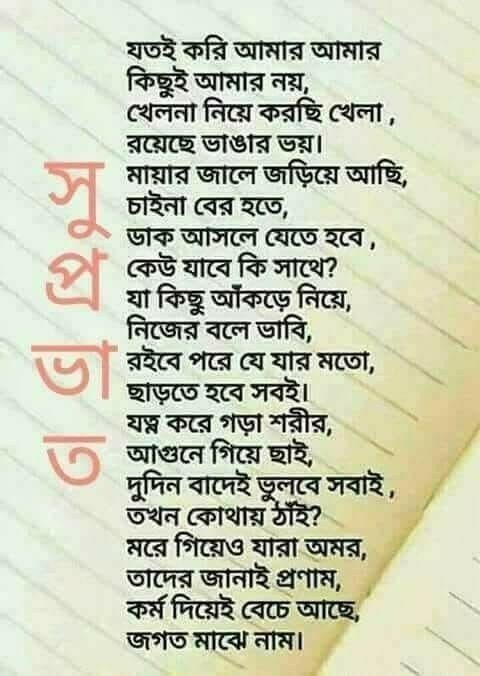 যতই করি আমার আমার
কিছুই আমার নয়,
খেলনা নিয়ে করছি খেলা ,
রয়েছে ভাঙার ভয়।
মায়ার জালে জড়িয়ে আছি,
চাইনা বের হতে,
ডাক আসলে যেতে হবে ,
কেউ যাবে কি সাথে?
যা কিছু আঁকড়ে নিয়ে,
নিজের বলে ভাবি,
রইবে পরে যে যার মতো,
ছাড়তে হবে সবই।
যত্ন করে গড়া শরীর,
আগুনে গিয়ে ছাই,
দুদিন বাদেই ভুলবে সবাই ,
তখন কোথায় ঠাঁই?
মরে গিয়েও যারা অমর,
তাদের জানাই প্রণাম,
কর্ম দিয়েই বেচে আছে,
জগত মাঝে নাম।
সু
প্র
ভা
ত